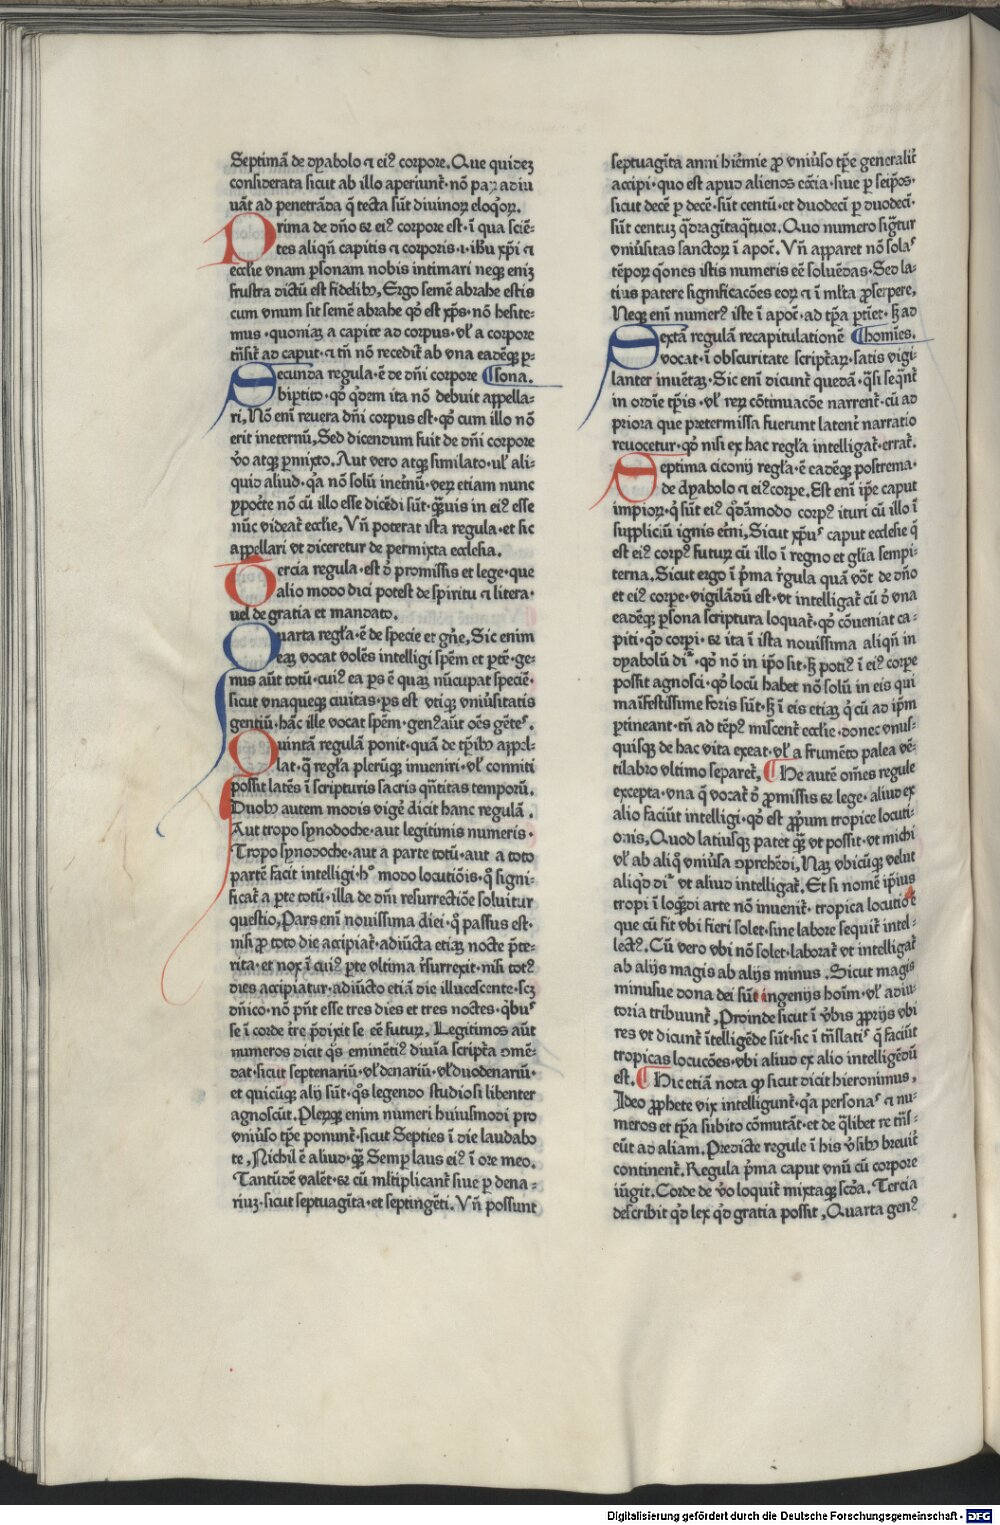 Septimā de dyabolo ⁊ ei⁹ corpore. Que quidez
considerata sicut ab illo aperiunt᷑· nō paꝝ adiu
uāt ad penetrāda q̄ tecta sūt diuinoꝝ eloq̇oꝝ.
Prima de dn̄o ⁊ ei⁹ corpore est· ī qua sciē⸗
tes aliqn̄ capitis ⁊ corporis· ı· ih̄u xp̄i ⁊
ecclie vnam ꝑsonam nobis intimari neqꝫ eniz
frustra dictū est fidelibꝰ, Ergo semē abrahe estis
cum vnum sit semē abrahe qḋ est xp̄s· nō hesite⸗
mus· quoniaꝫ a capite ad corpus· vl̓ a corpore
trāsit᷑ ad caput· ⁊ tn̄ nō recedit᷑ ab vna eadēqꝫ ꝑ⸗
Secunda regula· ē de dn̄i corpore ¶sona.
bip̄tito· qḋ q̇dem ita nō debuit appella⸗
ri, Nō eni reuera dn̄i corpus est· qḋ cum illo nō
erit ineternū, Sed dicendum fuit de dn̄i corpore
v̇o atqꝫ ꝑmixto. Aut vero atqꝫ similato· ul̓ ali⸗
quid aliud· q̇a nō solū inet̓nū· veꝝ etiam nunc
ypoc̓te nō cū illo esse dicēdi sūt· q̄ꝫuis in ei⁹ esse
nūc videat᷑ ecclie, Vn̄ poterat ista regula· et sic
appellari vt diceretur de permixta ecclesia.
Tercia regula· est ḋ promissis et lege· que
alio modo dici potest de spiritu ⁊ litera·
uel de gratia et mandato.
Quarta regl̓a· ē de specie et gn̄e, Sic enim
eaꝫ vocat volēs intelligi spēm et ꝑtē· ge⸗
nus aūt totū· cui⁹ ea ꝑs ē quaꝫ nūcupat speciē·
sicut vnaqueqꝫ ciuitas· ꝑs est vtiqꝫ vniūsitatis
gentiū· hāc ille vocat spēm· gen⁹ aūt oēs gētes·
Quintā regulā ponit· quā de tp̄ibꝰ appel⸗
lat· q̄ regl̓a plerūqꝫ inueniri· vl̓ conniti
possit latēs ī scripturis sacris qn̄titas temporū.
Duobꝰ autem modis vige᷑ dicit hanc regulā.
Aut tropo synodoche· aut legitimis numeris·
Tropo synodoche· aut a parte totū· aut a toto
partē facit intelligi· h° modo locutiōis· q̄ signi⸗
ficat᷑ a ꝑte totū· illa de dn̄i resurrectiōe soluitur
questio, Pars eni nouissima diei· q̄ passus est·
nisi ꝓ toto die accipiat᷑· adiūcta etiaꝫ nocte p̄te⸗
rita· et nox ī cui⁹ ꝑte vltima r̄surrexit· nisi tot⁹
dies accipiatur· adiūcto etiā die illucescente· scꝫ
dn̄ico· nō pn̄t esse tres dies et tres noctes· q̇bus
se ī corde tr̄e p̄dixit se eē futuꝝ. Legitimos aūt
numeros dicit q̇s eminēti⁹ diuīa script̄a ꝯmē⸗
dat· sicut septenariū· vl̓ denariū· vl̓ duodenariū·
et quicūqꝫ alij sūt· q̇s legendo studiosi libenter
agnoscūt. Pleꝝqꝫ enim numeri huiusmodi pro
vniūso tp̄e ponunt᷑· sicut Septies ī die laudabo
te, Nichil ē aliud· q̄ꝫ Semꝑ laus ei⁹ ī ore meo.
Tantūdē valēt· ⁊ cū ml̓tiplicant᷑ siue ꝑ dena⸗
riuꝫ· sicut septuagīta· et septingēti. Vn̄ possunt
septuagīta anni hiēmie ꝓ vniūso tp̄e generalit᷑
accipi· quo est apud alienos ecc̄ia· siue ꝑ seip̄os·
sicut decē ꝑ decē· sūt centū· et duodeci ꝑ duodeci·
sūt centuꝫ q̇dragītaq̇tuor. Quo numero sigtur
vniūsitas sanctoꝝ ī apoc᷑. Vn̄ apparet nō solas
tēpoꝝ q̄ones istis numeris eē soluēdas· Sed la⸗
tius patere significacōes eoꝝ ⁊ ī ml̓ta ꝓserpere,
Neqꝫ eni numer⁹ iste ī apoc᷑· ad tp̄a ꝑtīet· ꝫ ad
Sextā regulā recapitulationē ¶homīes.
vocat· ī obscuritate script̄aꝝ· satis vigi⸗
lanter inuētaꝫ· Sic eni dicunt᷑ quedā· q̄si seq̄nt᷑
in ordīe tp̄is· vl̓ reꝝ cōtinuacōe narrent᷑· cū ad
priora que pretermissa fuerunt latent᷑ narratio
reuocetur· qḋ nisi ex hac regl̓a intelligat᷑· errat᷑.
Septima ciconij regl̓a· ē eadēqꝫ postrema·
de dyabolo ⁊ ei⁹ corꝑe. Est eni ip̄e caput
impioꝝ· q̇ sūt ei⁹ q̇dāmodo corp⁹ ituri cū illo ī
suppliciū ignis et̓ni, Sicut xp̄us caput ecclesie q̄
est ei⁹ corp⁹ futuꝝ cū illo ī regno et gl̓ia sempi⸗
terna. Sicut ergo ī p̄ma r̄gula quā vōt de dn̄o
et ei⁹ corꝑe· vigilādū est· vt intelligat᷑ cū ḋ vna
eadēqꝫ ꝑsona scriptura loquat᷑· qḋ cōueniat ca⸗
piti· qḋ corpi· ⁊ ita ī ista nouissima aliqn̄ in
dyabolū di᷑· qḋ nō in ip̄o sit· ꝫ poti⁹ ī ei⁹ corꝑe
possit agnosci· qḋ locū habet nō solū in eis qui
maīfestissime foris sūt· ꝫ ī eis etiaꝫ q̇ cū ad ip̄m
ꝑtineant· tn̄ ad tēp⁹ miscent᷑ ecclie· donec vnus⸗
quisqꝫ de hac vita exeat· vl̓ a frumēto palea vē⸗
tilabro vltimo separet᷑, ¶ He autē om̄es regule
excepta· vna q̄ vocat᷑ ḋ ꝓmissis ⁊ lege· aliud ex
alio faciūt intelligi· qḋ est ꝓpriū tropice locuti⸗
onis, Quod latiusqꝫ patet q̄ꝫ vt possit· vt michi
vl̓ ab aliq̇ vniūsa ꝯprehēdi, Naꝫ vbicūqꝫ velut
aliqḋ di᷑ vt aliud intelligat᷑. Et si nomē ip̄ius
tropi ī loquēdi arte nō inuenit᷑· tropica locutio ē
que cū fit vbi fieri solet· sine labore sequit᷑ intel⸗
lect⁹. Cū vero vbi nō solet· laborat᷑ vt intelligat᷑
ab alijs magis ab alijs minus. Sicut magis
minusue dona dei sūt ingenijs hoīm· vl̓ adiu⸗
toria tribuunt᷑, Proinde sicut ī v̓bis ꝓprijs vbi
res vt dicunt᷑ ītelligēde sūt· sic ī trāslatis q̄ faciūt
tropicas locucōes· vbi aliud ex alio intelligēdū
est. ¶ Hic etiā nota ꝙ sicut dicit hieronimus,
Ideo ꝓphete vix intelligunt᷑· q̇a personas ⁊ nu⸗
meros et tp̄a subito cōmutāt· et de q̄libet re trās⸗
eūt ad aliam. Predicte regule ī his v̓sibꝰ breuit᷑
continent᷑. Regula p̄ma caput vnū cū corpore
iūgit. Corde de v̇o loquit᷑ mixtaqꝫ scd̄a. Tercia
describit qḋ lex qḋ gratia possit, Quarta gen⁹
Digitalisierung gefördert durch die Deutsche Forschungsgemeinschaft - DFG